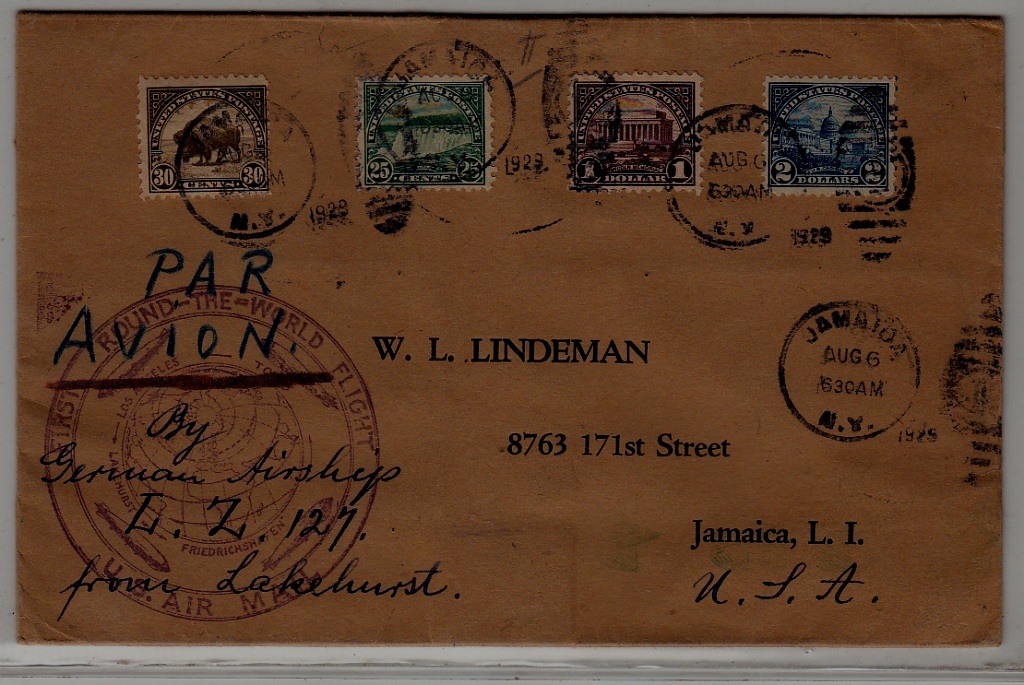 UNITED STATES POSTAGE
30 CENTS 30
UNITED STATES POSTAGE
25 CENTS 25
UNITED STATES POSTAGE
1 DOLLAR 1
UNITED STATES POSTAGE
2 DOLLARS 2
N.Y.
1929
JAMAICA
1929
JAMAICA
AUG 6
630AM
N.Y.
1929
PAR
AVION.
FIRST ROUND-THE-WORLD FLIGHT
LOS
TO
FRIEDRICHSHAFEN
U.S. AIR MAIL
By
German Airship
L. Z. 127.
from Lakehurst.
W. L. LINDEMAN
8763 171st Street
Jamaica, L. I.
U. S. A.
JAMAICA
AUG 6
630AM
N.Y.
1929